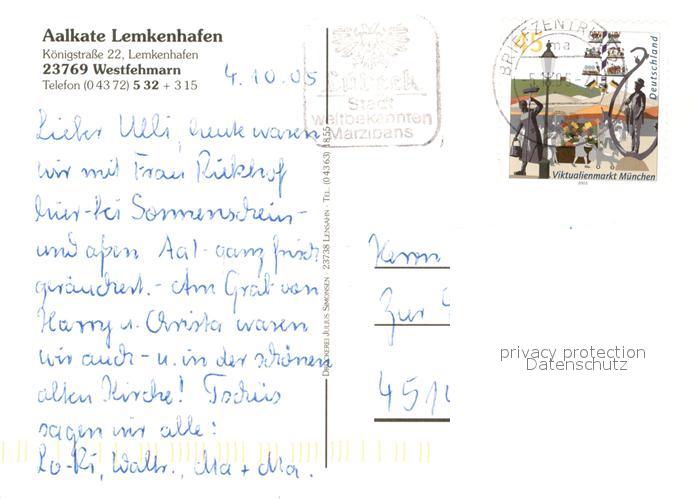 Aalkate Lemkenhafen
Königstraße 22, Lemkenhafen
23769 Westfehmarn
Telefon (0 43 72) 5 32 + 3 15
4.10.05
Lübeck
Stadt
weltbekannten
Marzipans
BRIEFZENTRUM
45
Deutschland
Viktualienmarkt München
2003
Lieber Ulli, heute waren
wir mit Frau
hier bei Sonnenschein -
und aßen Aal - ganz frisch
geräuchert. - Am Grab von
Harry u. Christa waren
wir auch - u. in der schönen
alten Kirche! Tschüs
sagen wir alle:
Lo-Ri, Waltr., Ma + Ma.
Druckerei Julius Simonsen 23738 Lensahn · Tel. (0 43 63) 18 55
Herrn
Zur
451
privacy protection
Datenschutz